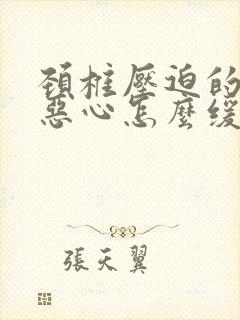 頚柱壓迫的
惡心怎麼緩
張天翼